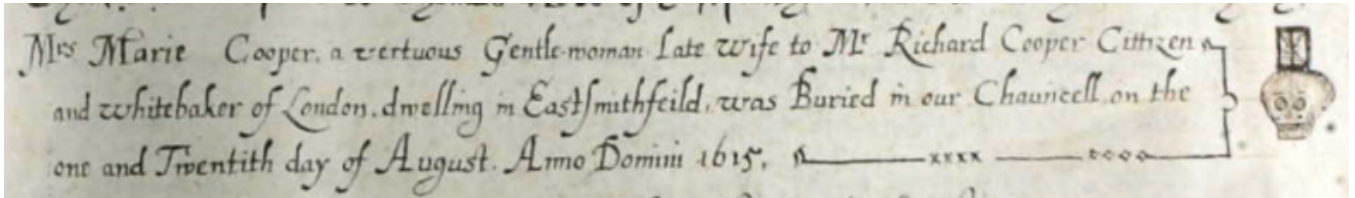 Mrs Marie Cooper, a vertuous Gentle-woman Late wife to Mr Richard Cooper Cittizen
and whitebaker of London, dwelling in Eastsmithfeild, was Buried in our Chauncell on the
one and Twentith day of August. Anno Domini 1615.